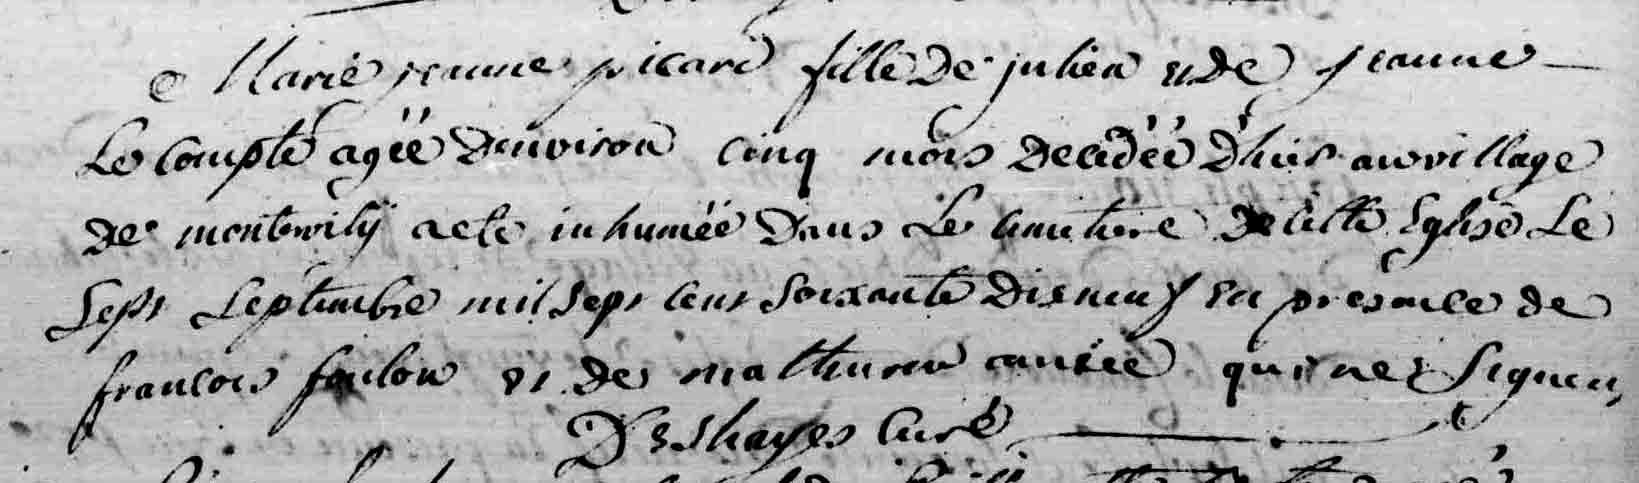 Marie jeanne picard fille De julien et De jeanne
Le Compte agée Denviron cinq mois Decedée D'hier au village
De monterwily a ete inhumée Dans Le Cimetiere De cette Eglise Le
Sept Septembre mil Sept Cent Soixante Dis neuf en presence de
francois foulon et De mathurin qui ne Signent,
Deshayes Curé